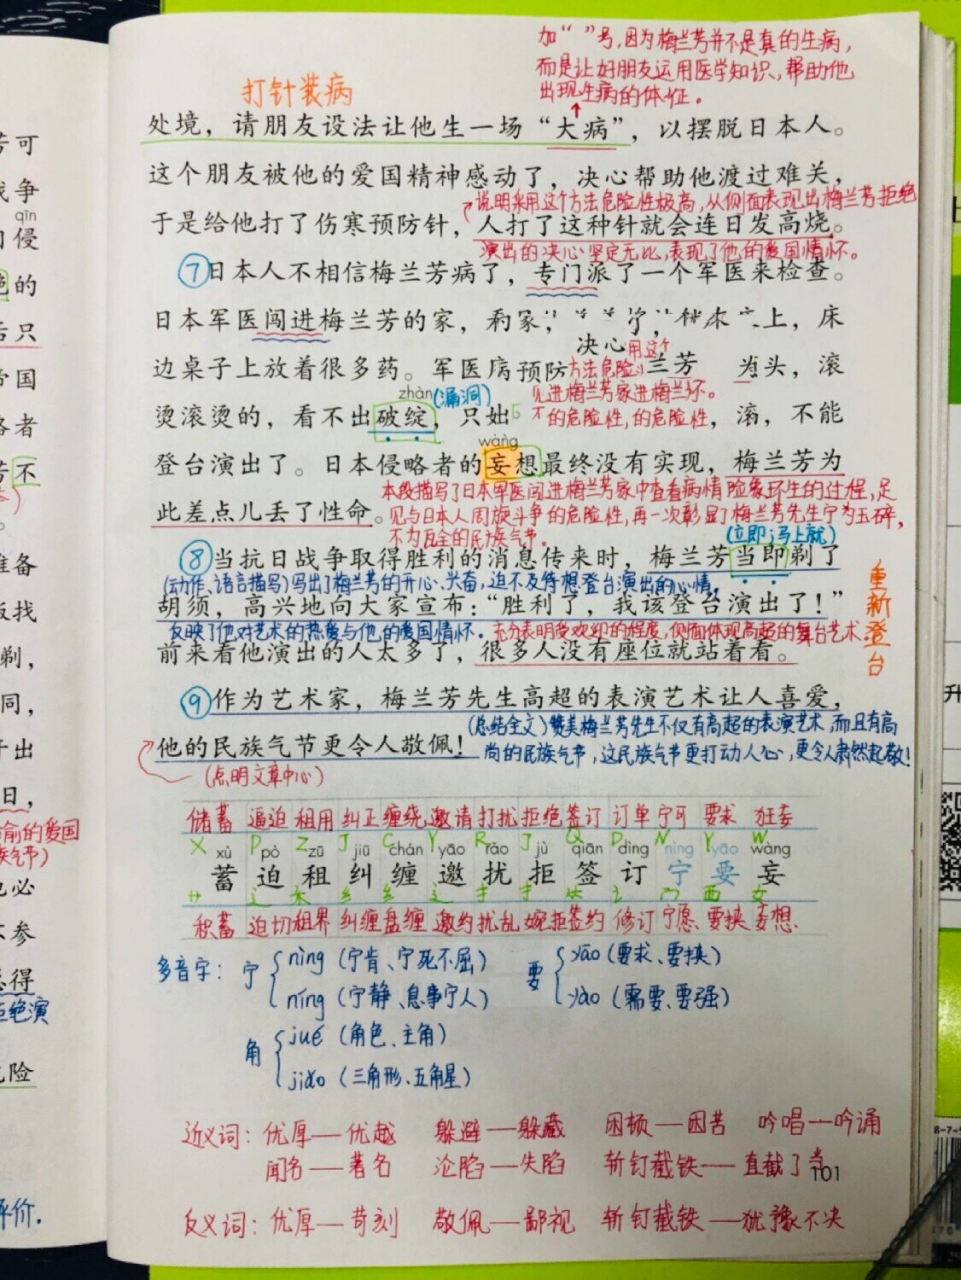 加“ ”号,因为梅兰芳并不是真的生病,
而是让好朋友运用医学知识,帮助他
出现生病的体征。
打针装病
处境，请朋友设法让他生一场“大病”，以摆脱日本人。
这个朋友被他的爱国精神感动了，决心帮助他渡过难关，
说明采用这个方法危险性极高,从侧面表现出梅兰芳拒绝
于是给他打了伤寒预防针，人打了这种针就会连日发高烧。
演出的决心坚定无比,表现了他的爱国情怀。
⑦日本人不相信梅兰芳病了，专门派了一个军医来检查。
日本军医闯进梅兰芳的家，
上，床
决心用这个
边桌子上放着很多药。军医
预防方法危险
兰芳
头，滚
zhàn
(漏洞)
见进梅兰芳家进梅兰
烫滚烫的，看不出破绽，只
的危险性,的危险性,
，不能
wàng
登台演出了。日本侵略者的妄想最终没有实现，梅兰芳为
本段描写了日本军医闯进梅兰芳家中查看病情险象环生的过程,足
此差点儿丢了性命。
见与日本人周旋斗争的危险性,再一次彰显了梅兰芳先生宁为玉碎,
不为瓦全的民族气节。
(立即;马上就)
⑧当抗日战争取得胜利的消息传来时，梅兰芳当即剃了
(动作、语言描写)写出了梅兰芳的开心、兴奋,迫不及待想登台演出的心情,
胡须，高兴地向大家宣布：“胜利了，我该登台演出了！”
反映了他对艺术的热爱与他的爱国情怀。充分表明受欢迎的程度,侧面体现高超的舞台艺术。
前来看他演出的人太多了，很多人没有座位就站着看。
重新登台
⑨作为艺术家，梅兰芳先生高超的表演艺术让人喜爱，
(总结全文)赞美梅兰芳先生不仅有高超的表演艺术,而且有高
他的民族气节更令人敬佩！
尚的民族气节,这民族气节更打动人心,更令人肃然起敬!
(点明文章中心)
储蓄 逼迫 租用 纠正 缠绕 邀请 打扰 拒绝 签订 订单 宁可 要求 狂妄
X P Z J C Y R J Q D N Y W
xù pò zū jiū chán yāo rǎo jù qiān dìng nìng yāo wàng
蓄 迫 租 纠 缠 邀 扰 拒 签 订 宁 要 妄
艹 辶 禾 纟 纟 辶 扌 扌 ⺮ 讠 宀 覀 女
积蓄 迫切 租界 纠缠 盘缠 邀约 扰乱 婉拒 签约 修订 宁愿 要挟 妄想
多音字: 宁 nìng (宁肯、宁死不屈) 要 yāo (要求、要挟)
níng (宁静、息事宁人) yào (需要、要强)
角 jué (角色、主角)
jiǎo (三角形、五角星)
近义词: 优厚—优越 躲避—躲藏 困顿—困苦 吟唱—吟诵
闻名—著名 沦陷—失陷 斩钉截铁—直截了当
101
反义词: 优厚—苛刻 敬佩—鄙视 斩钉截铁—犹豫不决
可
争
qīn
侵
的
只
国
者
不
准备
找
剃，
同，
出
日，
的爱国
气节)
必
参
得
拒绝演
险
评价.
升